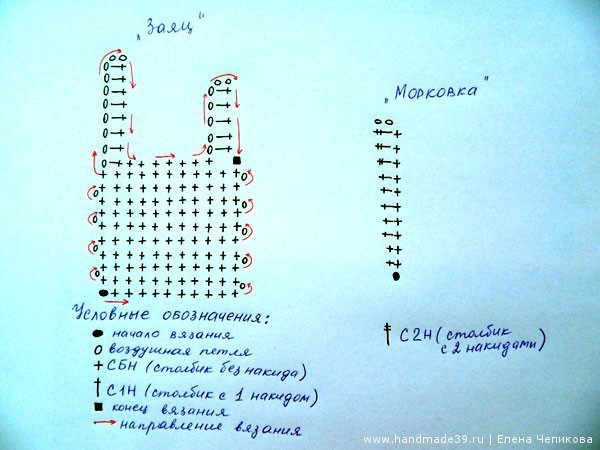 „Заяц"
„Морковка"
Условные обозначения:
начало вязания
воздушная петля
СБН (столбик без накида)
С1Н (столбик с 1 накидом)
конец вязания
направление вязания
С2Н (столбик
с 2 накидами)
www.handmade39.ru | Елена Чепикова